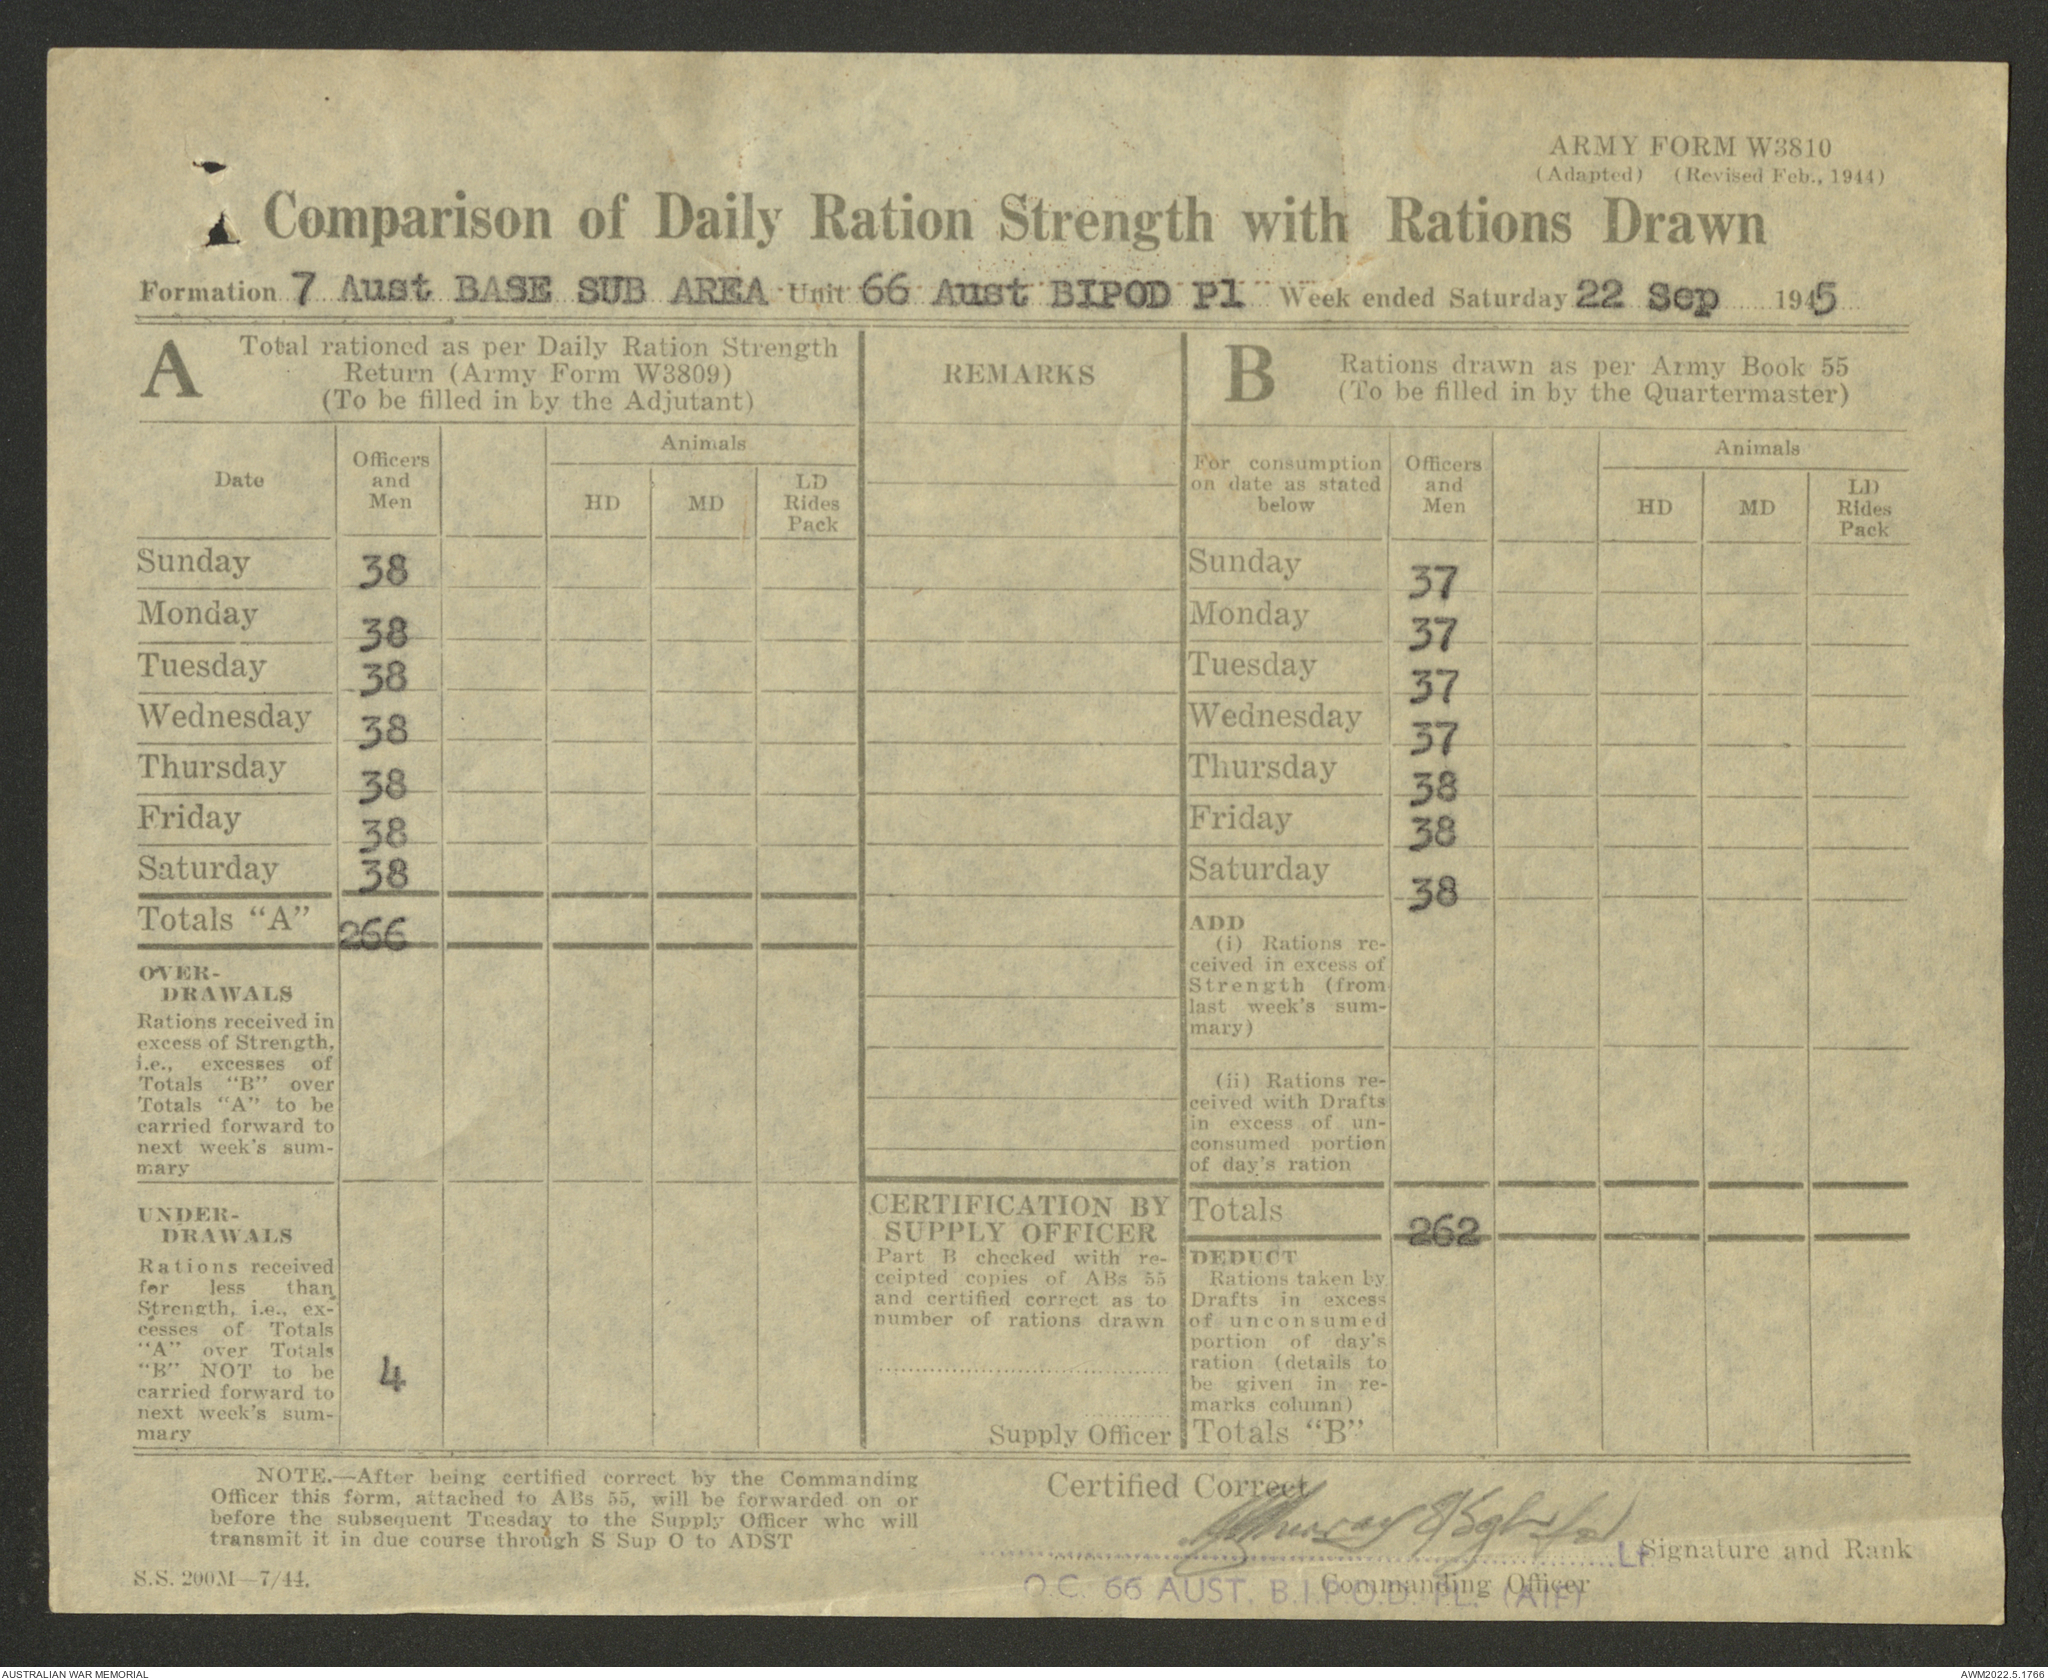 ARMY FORM W3810
(Adapted) (Revised Feb., 1944)
Comparison of Daily Ration Strength with Rations Drawn
Formation 7 Aust BASE SUB AREA Unit 66 Aust BIPOD Pl Week ended Saturday 22 Sep 1945
A Total rationed as per Daily Ration Strength
Return (Army Form W3809)
(To be filled in by the Adjutant)
Date
Officers
and
Men
Animals
HD MD LD
Rides
Pack
Sunday 38
Monday 38
Tuesday 38
Wednesday 38
Thursday 38
Friday 38
Saturday 38
Totals "A" 266
OVER-
DRAWALS
Rations received in
excess of Strength,
i.e., excesses of
Totals "B" over
Totals "A" to be
carried forward to
next week's sum-
mary
UNDER-
DRAWALS
Rations received
for less than
Strength, i.e., ex-
cesses of Totals
"A" over Totals
"B" NOT to be
carried forward to
next week's sum-
mary
4
REMARKS
CERTIFICATION BY
SUPPLY OFFICER
Part B checked with re-
ceipted copies of ABs 55
and certified correct as to
number of rations drawn
Supply Officer
B Rations drawn as per Army Book 55
(To be filled in by the Quartermaster)
For consumption
on date as stated
below
Officers
and
Men
Animals
HD MD LD
Rides
Pack
Sunday 37
Monday 37
Tuesday 37
Wednesday 37
Thursday 38
Friday 38
Saturday 38
ADD
(i) Rations re-
ceived in excess of
Strength (from
last week's sum-
mary)
(ii) Rations re-
ceived with Drafts
in excess of un-
consumed portion
of day's ration
Totals 262
DEDUCT
Rations taken by
Drafts in excess
of unconsumed
portion of day's
ration (details to
be given in re-
marks column)
Totals "B"
NOTE.—After being certified correct by the Commanding
Officer this form, attached to ABs 55, will be forwarded on or
before the subsequent Tuesday to the Supply Officer who will
transmit it in due course through S Sup O to ADST
S.S. 200M—7/44.
Certified Correct
Lt Signature and Rank
Commanding Officer
O.C. 66 AUST. B.I.P.O.D. PL. (AIF)
AUSTRALIAN WAR MEMORIAL
AWM2022.5.1766